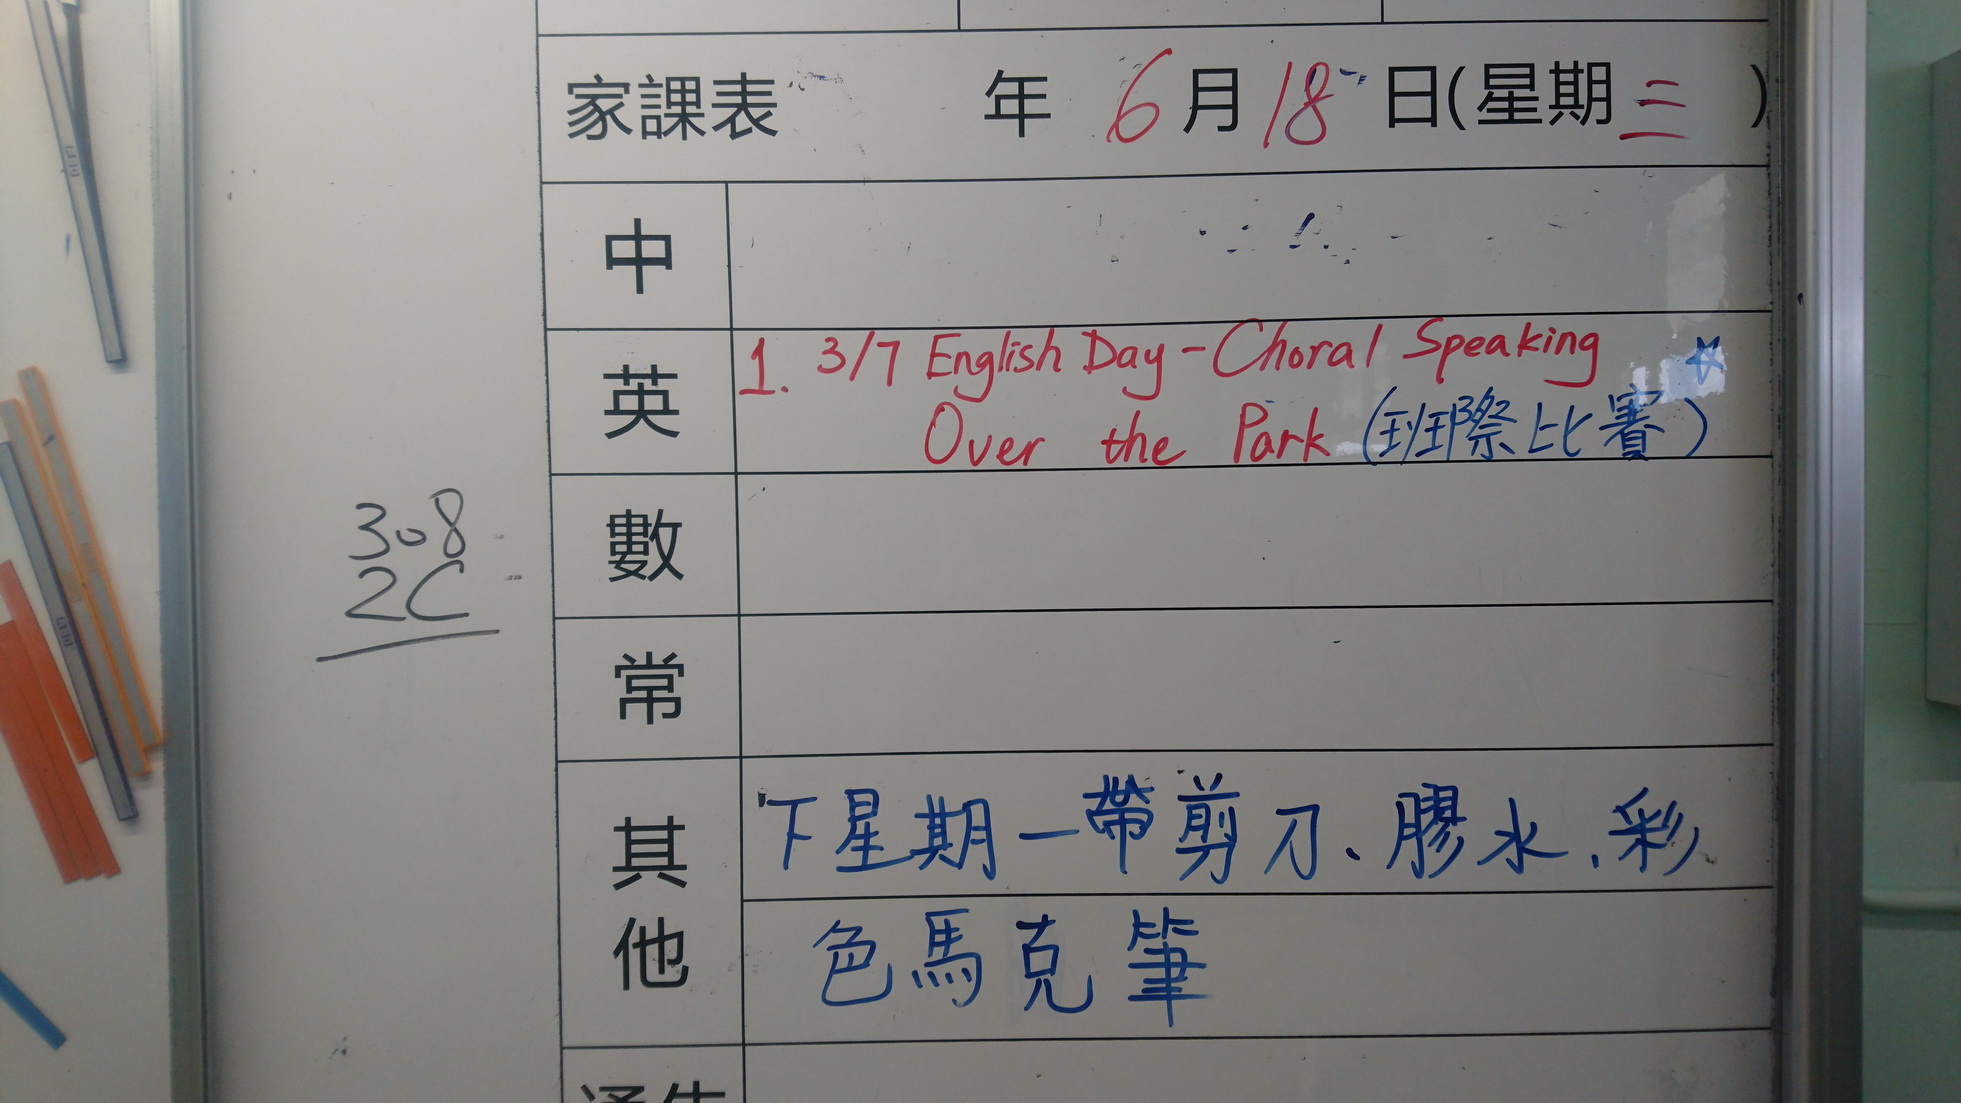 家課表 年 6月18日(星期三)
中
英 1. 3/7 English Day - Choral Speaking ☆
Over the Park (班際比賽)
數
308
2C
常
其他 下星期一帶剪刀、膠水、彩
色馬克筆
通告